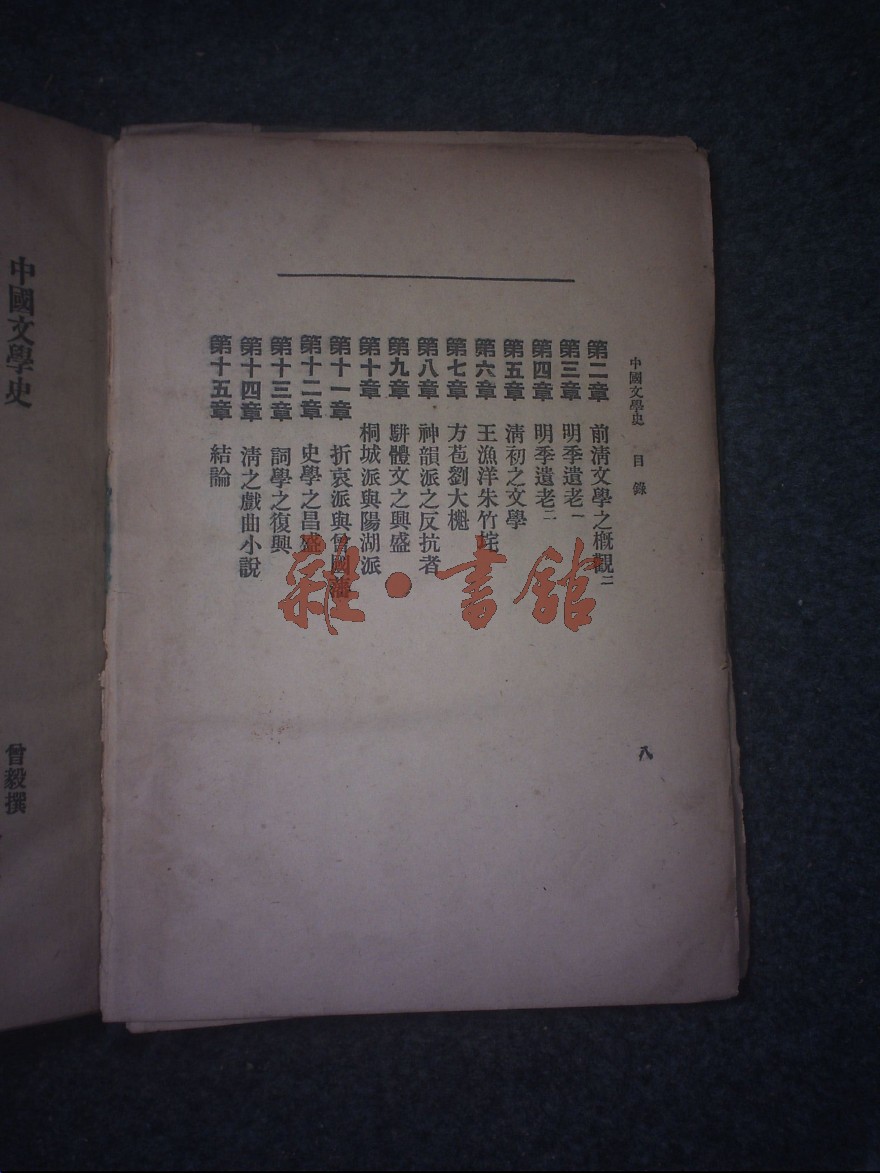 中國文學史 目錄
第二章 前淸文學之槪觀二
第三章 明季遺老一
第四章 明季遺老二
第五章 淸初之文學
第六章 王漁洋朱竹垞
第七章 方苞劉大櫆
第八章 神韻派之反抗者
第九章 駢體文之興盛
第十章 桐城派與陽湖派
第十一章 折衷派與曾國藩
第十二章 史學之昌盛
第十三章 詞學之復興
第十四章 淸之戲曲小說
第十五章 結論
八
中國文學史
曾毅撰
雜·書館